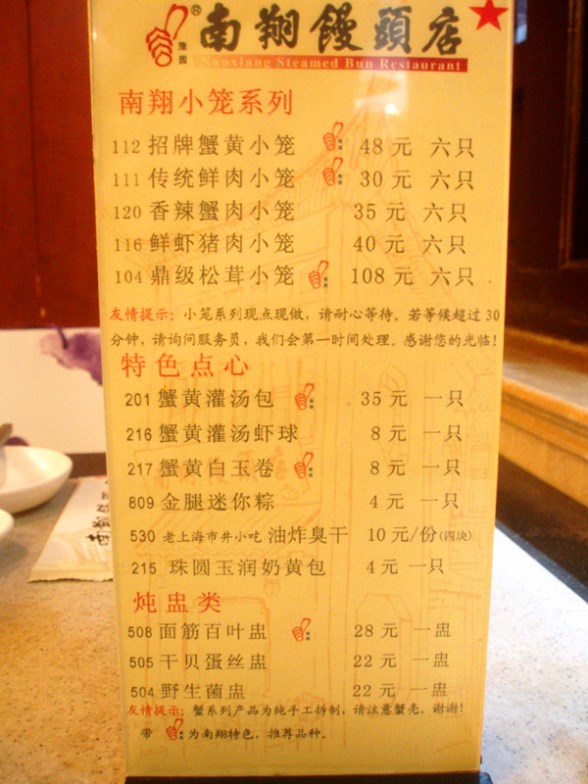 ® 南翔饅頭店
豫园
Nanxiang Steamed Bun Restaurant
南翔小笼系列
112 招牌蟹黄小笼 48 元 六只
111 传统鲜肉小笼 30 元 六只
120 香辣蟹肉小笼 35 元 六只
116 鲜虾猪肉小笼 40 元 六只
104 鼎级松茸小笼 108 元 六只
友情提示：小笼系列现点现做，请耐心等待。若等候超过 30
分钟，请询问服务员，我们会第一时间处理。感谢您的光临！
特色点心
201 蟹黄灌汤包 35 元 一只
216 蟹黄灌汤虾球 8 元 一只
217 蟹黄白玉卷 8 元 一只
809 金腿迷你粽 4 元 一只
530 老上海市井小吃 油炸臭干 10 元/份(四块)
215 珠圆玉润奶黄包 4 元 一只
炖盅类
508 面筋百叶盅 28 元 一盅
505 干贝蛋丝盅 22 元 一盅
504 野生菌盅 22 元 一盅
友情提示：蟹系列产品为纯手工拆制，请注意蟹壳。谢谢！
带 为南翔特色，推荐品种。